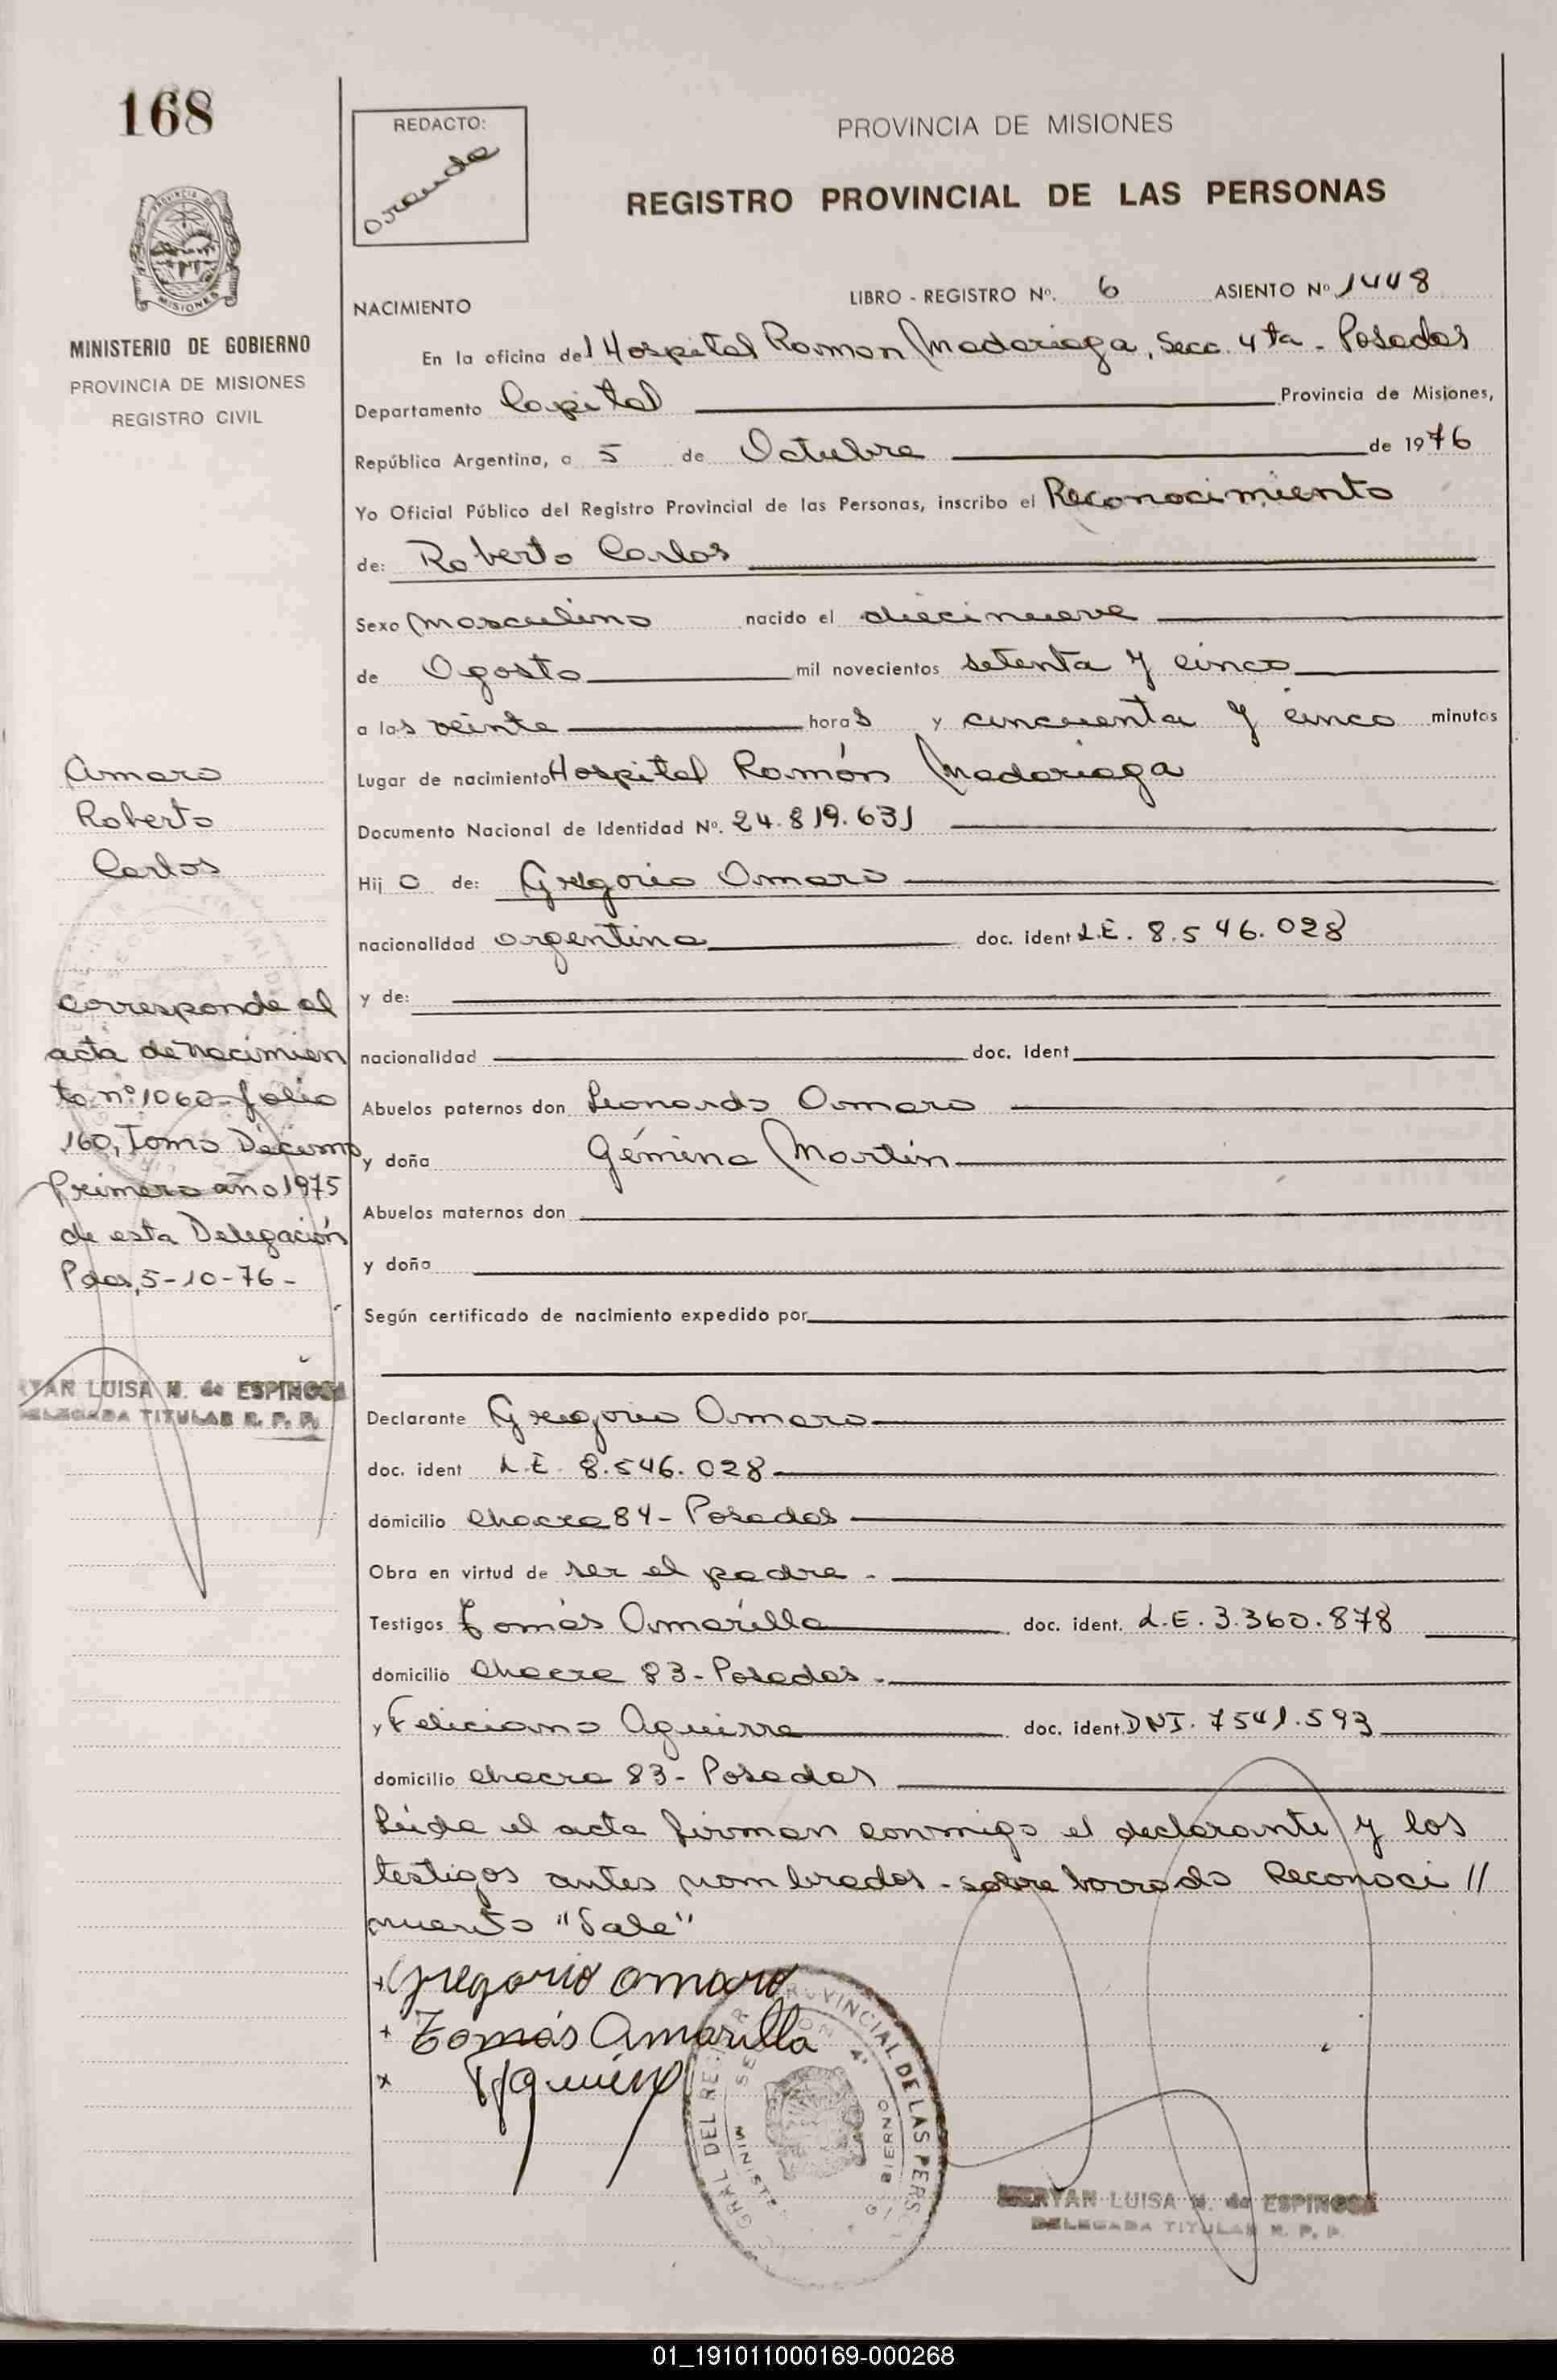 168
REDACTO:
PROVINCIA DE MISIONES
REGISTRO PROVINCIAL DE LAS PERSONAS
MISIONES
MINISTERIO DE GOBIERNO
PROVINCIA DE MISIONES
REGISTRO CIVIL
NACIMIENTO
LIBRO - REGISTRO Nº. 6 ASIENTO Nº 1448
En la oficina del Hospital Ramon Madariaga, Secc. 4ta - Posadas
Departamento Capital Provincia de Misiones,
República Argentina, a 5 de Octubre de 1976
Yo Oficial Público del Registro Provincial de las Personas, inscribo el Reconocimiento
de: Roberto Carlos
Sexo Masculino nacido el diecinueve
de Agosto mil novecientos setenta y cinco
a las veinte horas y cincuenta y cinco minutos
Lugar de nacimiento Hospital Ramón Madariaga
Documento Nacional de Identidad Nº. 24.819.631
Hijo de: Gregorio Amaro
nacionalidad argentina doc. ident L.E. 8.546.028
y de:
nacionalidad doc. ident
Abuelos paternos don Leonardo Amaro
y doña Gémina Martín
Abuelos maternos don
y doña
Según certificado de nacimiento expedido por
Declarante Gregorio Amaro
doc. ident L.E. 8.546.028
domicilio chacra 84 - Posadas
Obra en virtud de ser el padre.
Testigos Tomás Amarilla doc. ident. L.E. 3.360.878
domicilio chacra 83 - Posadas.
y Feliciano Aguirre doc. ident. DNI. 7541.593
domicilio chacra 83 - Posadas
Leída el acta firman conmigo el declarante y los
testigos antes nombrados - sobre borrado Reconoci //
miento "Vale"
x Gregorio amaro
x Tomás Amarilla
x
Amaro
Roberto
Carlos
corresponde al
acta de nacimien
to nº 1060 - folio
160, Tomo Décimo
primero año 1975
de esta Delegación
Pdas, 5-10-76 -
LUISA N. de ESPINOSA
DELEGADA TITULAR R. P. P.
GRAL DEL REG PROVINCIAL DE LAS PERS
MERYAN LUISA N. de ESPINOSA
DELEGADA TITULAR R. P. P.
01_191011000169-000268